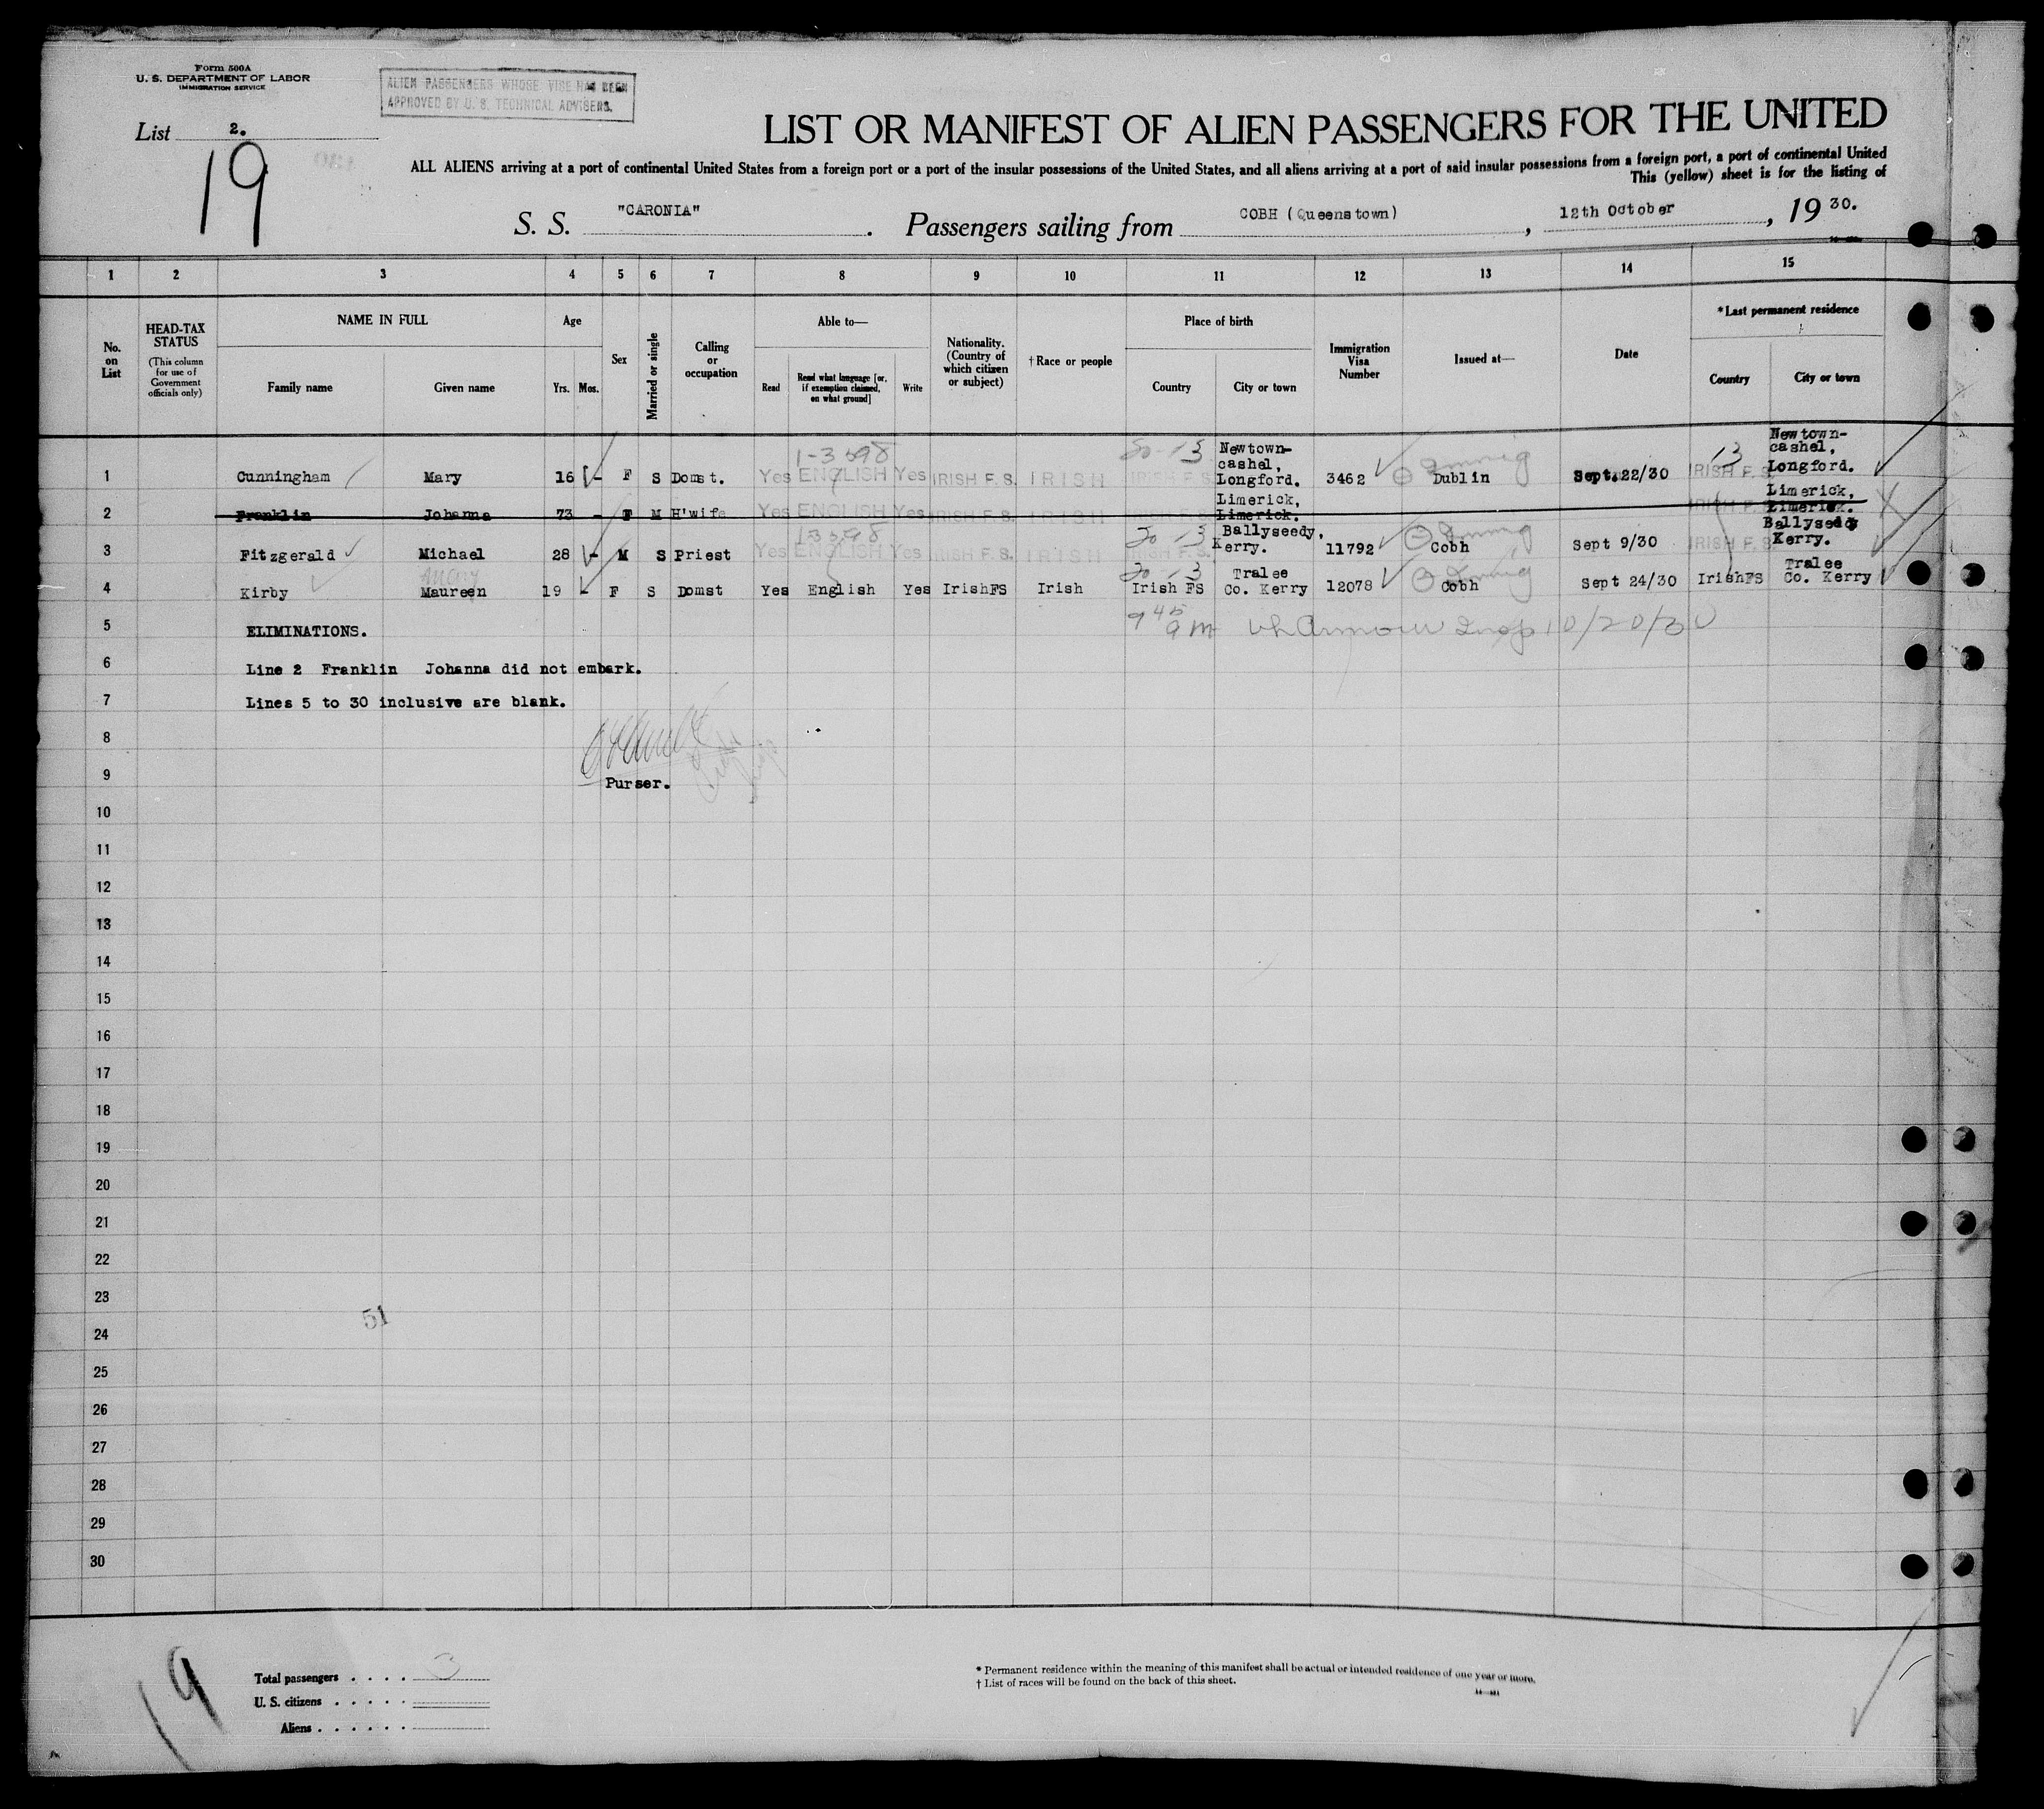 Form 500A
U. S. DEPARTMENT OF LABOR
IMMIGRATION SERVICE
ALIEN PASSENGERS WHOSE VISE HAS BEEN
APPROVED BY U. S. TECHNICAL ADVISERS.
List 2.
19
LIST OR MANIFEST OF ALIEN PASSENGERS FOR THE UNITED
ALL ALIENS arriving at a port of continental United States from a foreign port or a port of the insular possessions of the United States, and all aliens arriving at a port of said insular possessions from a foreign port, a port of continental United
This (yellow) sheet is for the listing of
S. S. "CARONIA". Passengers sailing from COBH (Queenstown), 12th October, 19 30.
1 2 3 4 5 6 7 8 9 10 11 12 13 14 15
No. on List
HEAD-TAX STATUS
(This column for use of Government officials only)
NAME IN FULL
Family name Given name
Age
Yrs. Mos.
Sex
Married or single
Calling or occupation
Able to—
Read
Read what language [or, if exemption claimed, on what ground]
Write
Nationality. (Country of which citizen or subject)
† Race or people
Place of birth
Country City or town
Immigration Visa Number
Issued at—
Date
* Last permanent residence
Country City or town
1-3598 20-13 13
1 Cunningham Mary 16 - F S Domst. Yes ENGLISH Yes IRISH F. S. IRISH IRISH F. S. Newtown-cashel, Longford. 3462 Dublin Sept. 22/30 IRISH F. S. Newtown-cashel, Longford.
2 Franklin Johanna 73 - F M H'wife Yes ENGLISH Yes IRISH F. S. IRISH IRISH F. S. Limerick, Limerick. IRISH F. S. Limerick, Limerick.
13598 20-13
3 Fitzgerald Michael 28 - M S Priest Yes ENGLISH Yes IRISH F. S. IRISH IRISH F. S. Ballyseedy, Kerry. 11792 Cobh Sept 9/30 IRISH F. S. Ballyseedy Kerry.
20-13
4 Kirby Maureen 19 - F S Domst Yes English Yes IrishFS Irish Irish FS Tralee Co. Kerry 12078 Cobh Sept 24/30 IrishFS Tralee Co. Kerry
5 ELIMINATIONS. 9 45 am Insp 10/20/30
6 Line 2 Franklin Johanna did not embark.
7 Lines 5 to 30 inclusive are blank.
8
9 Purser.
10
11
12
13
14
15
16
17
18
19
20
21
22
23
51
24
25
26
27
28
29
30
19
Total passengers . . . . 3
U. S. citizens . . . . .
Aliens . . . . . .
* Permanent residence within the meaning of this manifest shall be actual or intended residence of one year or more.
† List of races will be found on the back of this sheet.